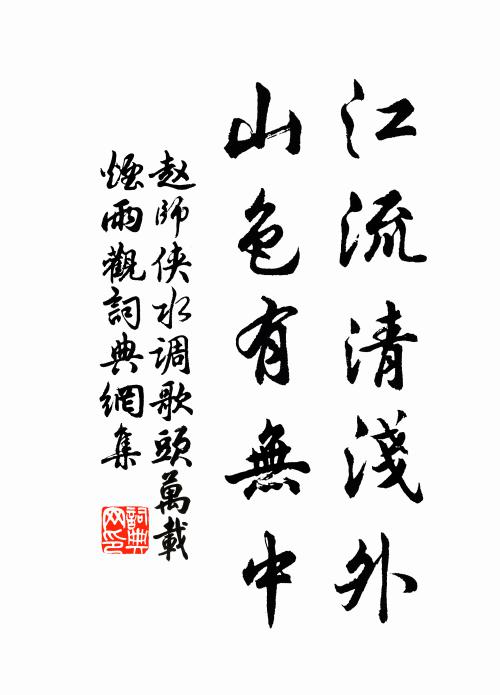 江流清淺外
山色有無中
赵師侠水调歌頭萬載
煙雨觀詞典網集
詞典网印